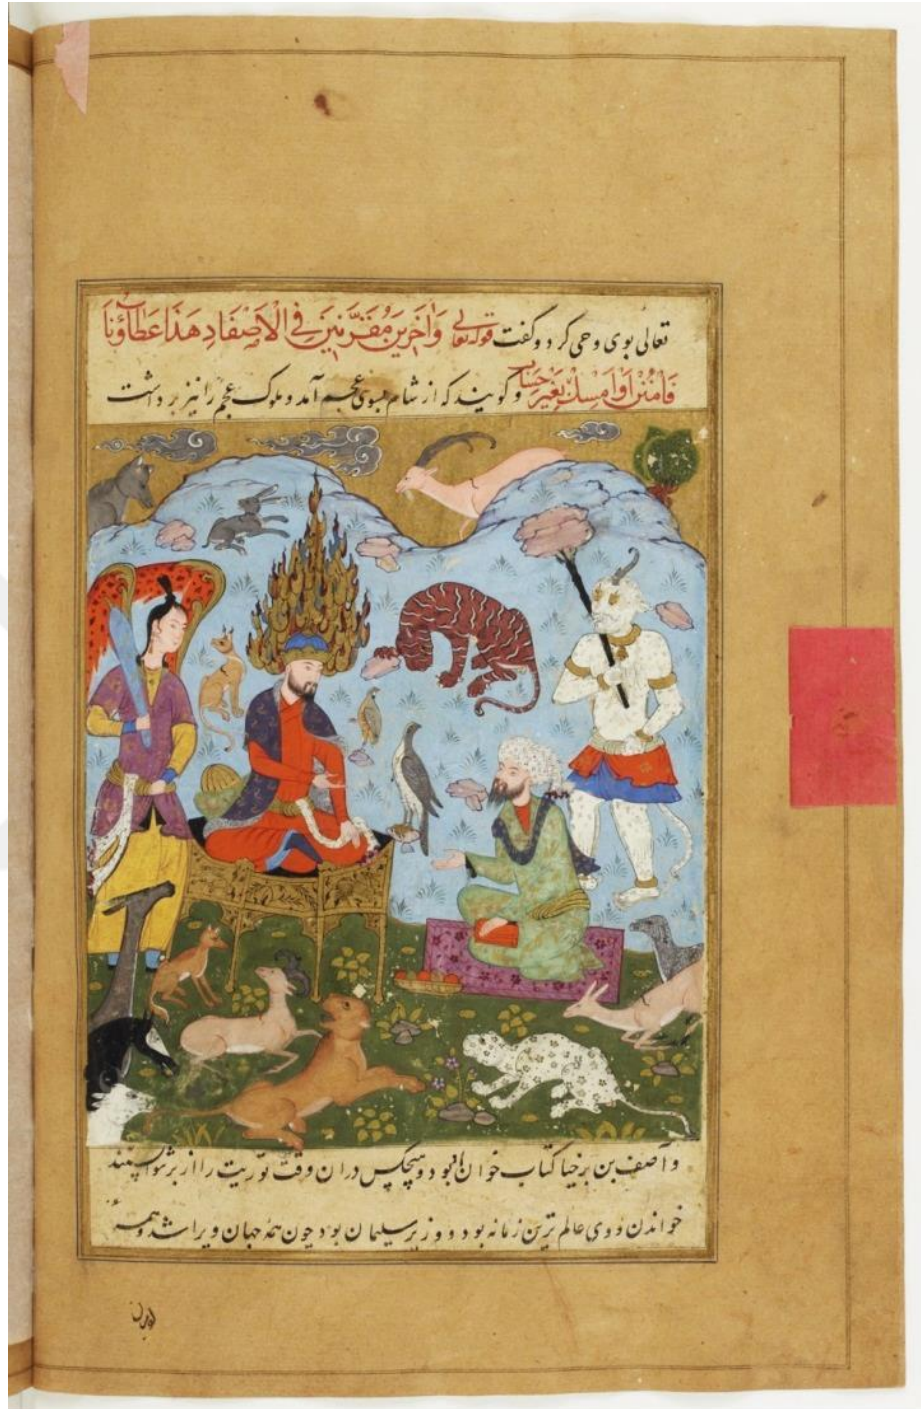 تعالی بوی وحی کرد و گفت قوله تعالی وَاٰخَرِینَ مُقَرَّنِینَ فِی الْاَصْفَادِ هَذَا عَطَاؤُنَا
فَامْنُنْ اَوْ اَمْسِكْ بِغَیْرِ حِسَابٍ و گویند که از شام بسوی عجم آمد و ملوک عجم را نیز برداشت
و آصف بن برخیا کتاب خوان بود و هیچکس دران وقت توریت را از بر
خواندن و وی عالم ترین زمانه بود و وزیر سلیمان بود چون همه جهان ویرا شد و همه